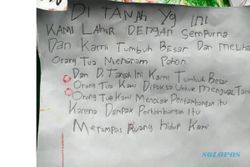 DI TANAH Yg INI
KAMI LAHIR DENGAN SEMPURNA
Dan KAMI TUMBUH BESAR Dan
ORang Tua Menanam Pohon
Dan Di Tanah Ini Kami Tumbuh Besar
ORang Tua Kami DiPaksa Untuk
ORang Tua Kami Menolak Pertambangan Itu
Karena Dampak Pertambangan Itu
Merampas Ruang Hidup Kami
SOLOPOS